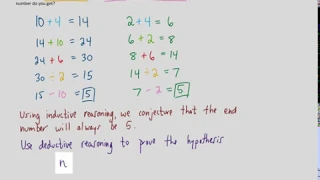 number do you get?
10 + 4 = 14
14 + 10 = 24
24 + 6 = 30
30 ÷ 2 = 15
15 - 10 = 5
2 + 4 = 6
6 + 2 = 8
8 + 6 = 14
14 ÷ 2 = 7
7 - 2 = 5
Using inductive reasoning, we conjecture that the end
number will always be 5.
Use deductive reasoning to prove the hypothesis
n